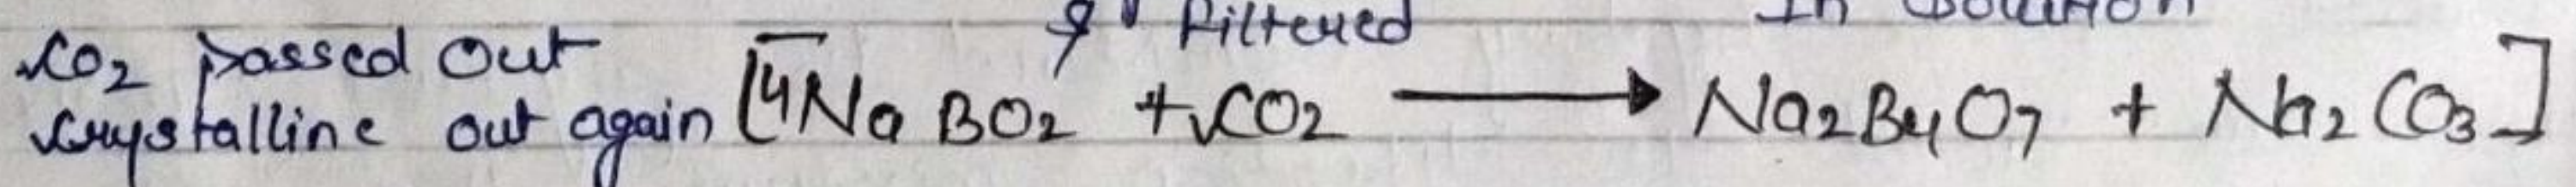 & Filtered In Solution
CO2 passed out
crystalline out again [4NaBO2 + CO2 ⟶ Na2B4O7 + Na2CO3]